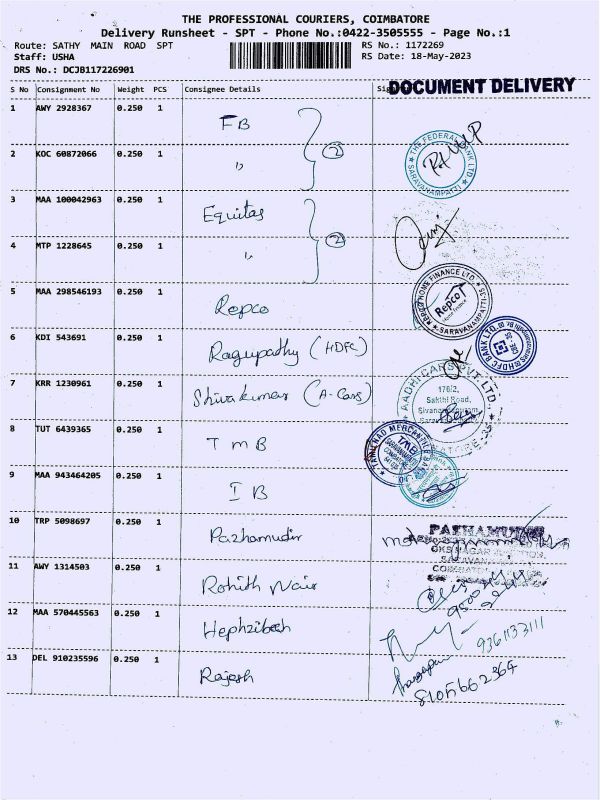 THE PROFESSIONAL COURIERS, COIMBATORE
Delivery Runsheet - SPT - Phone No.:0422-3505555 - Page No.:1
Route: SATHY MAIN ROAD SPT RS No.: 1172269
Staff: USHA RS Date: 18-May-2023
DRS No.: DCJB117226901
DOCUMENT DELIVERY
S No Consignment No Weight PCS Consignee Details
1 AWY 2928367 0.250 1 FB
2 KOC 60872066 0.250 1 " 2
THE FEDERAL BANK LTD SARAVANAMPATTI
3 MAA 100042963 0.250 1 Equitas
4 MTP 1228645 0.250 1 " 2
5 MAA 298546193 0.250 1 Repco
REPCO HOME FINANCE LTD. SARAVANAMPATTI
Repco
Home Finance
6 KDI 543691 0.250 1 Ragupathy (HDFC)
HDFC BANK LTD.
7 KRR 1230961 0.250 1 Shivakumar (A-Cars)
AADHI CARS PVT. LTD.
176/2,
Sakthi Road,
8 TUT 6439365 0.250 1 TMB
TAMILNAD MERCANTILE BANK
TMB
9 MAA 943464205 0.250 1 IB
10 TRP 5098697 0.250 1 Pazhamudir
PAZHAMUDIR
11 AWY 1314503 0.250 1 Rohith Nair
12 MAA 570445563 0.250 1 Hephzibah
9361133111
13 DEL 910235596 0.250 1 Rajesh
8105662364